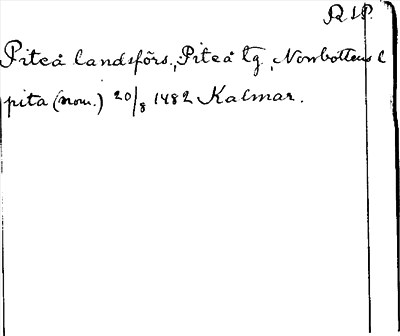 RAP.
Piteå landsförs., Piteå tg., Norrbottens l
pita (nom.) 20/8 1482 Kalmar.